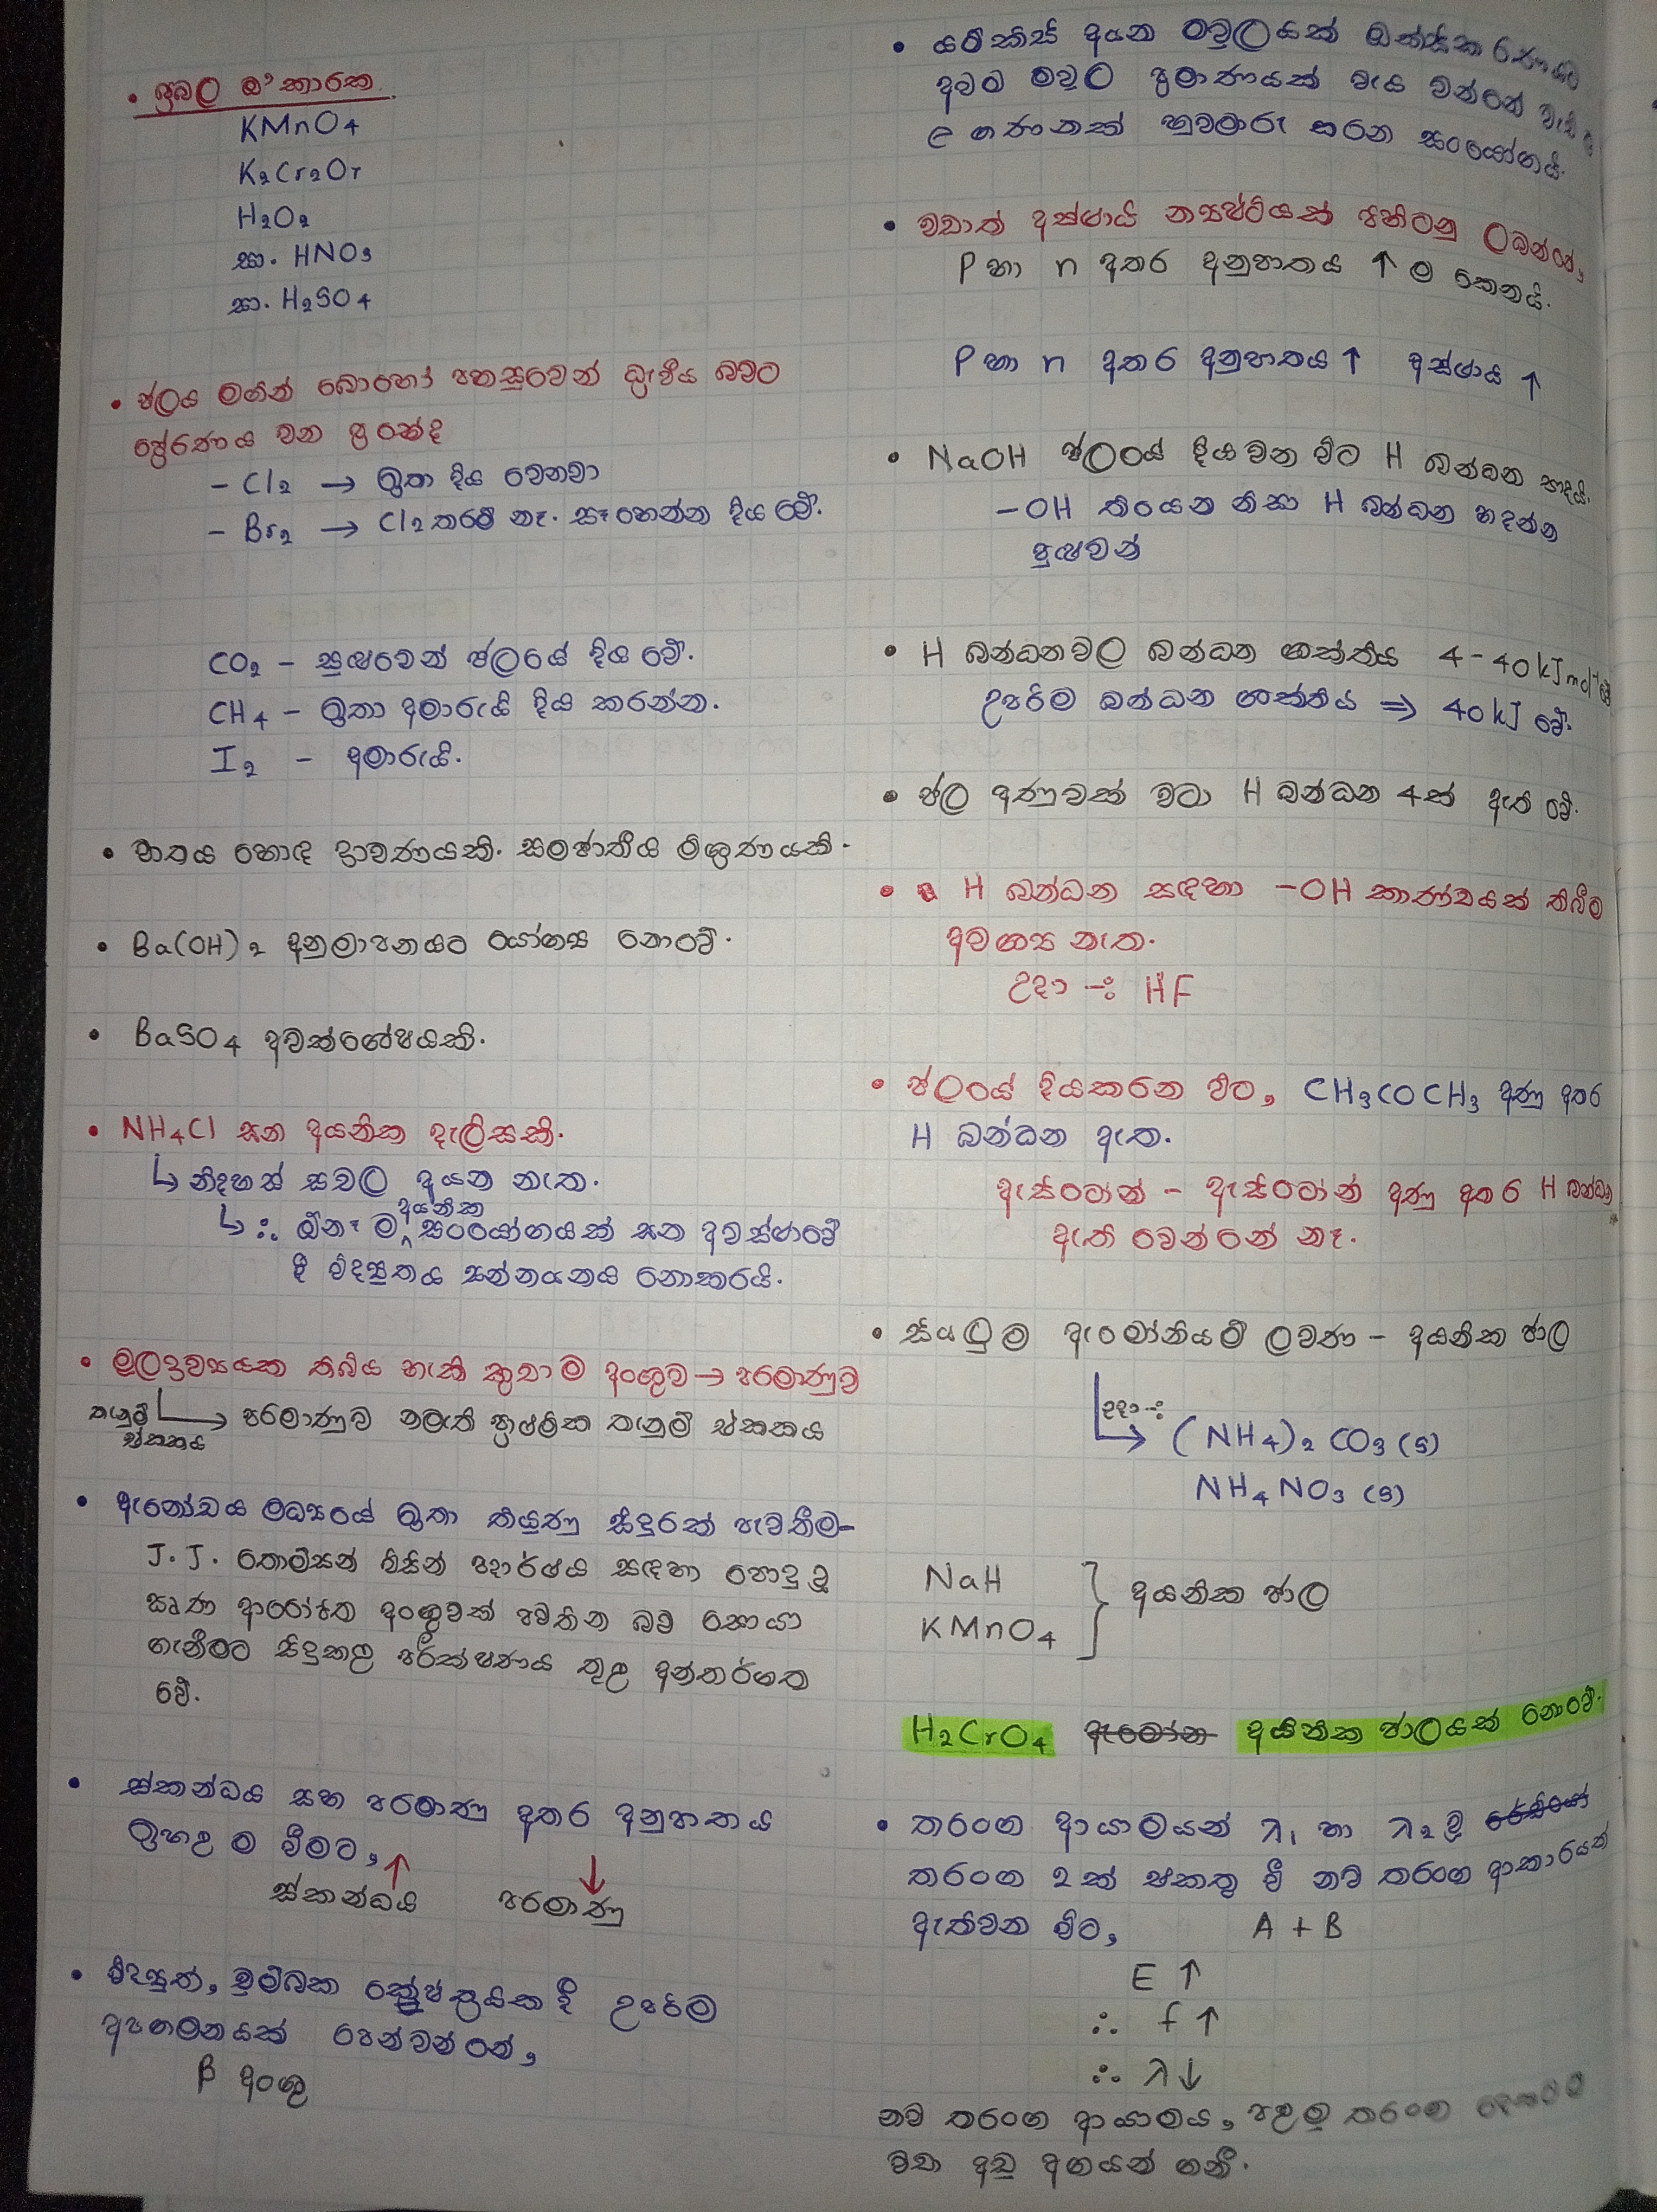 • ප්‍රබල ඔ' කාරක
KMnO4
K2Cr2O7
H2O2
සා. HNO3
සා. H2SO4
• ජලය මගින් බොහෝ පහසුවෙන් ධ්‍රැවීය බවට
ප්‍රේරණය වන ප්‍රභේද
- Cl2 → ඉතා දිය වෙනවා
- Br2 → Cl2 තරම් නෑ. සෑහෙන්න දිය වේ.
CO2 - සුළුවෙන් ජලයේ දිය වේ.
CH4 - ඉතා අමාරුයි දිය කරන්න.
I2 - අමාරුයි.
• වාතය හොඳ ද්‍රාවණයකි. සමජාතීය මිශ්‍රණයකි.
• Ba(OH)2 අනුමාපනයට යෝග්‍ය නොවේ.
• BaSO4 අවක්ශේපයකි.
• NH4Cl ඝන අයනික දැලිසකි.
↳ නිදහස් සචල අයන නැත.
↳ ∴ ඕනෑ ම අයනික සංයෝගයක් ඝන අවස්ථාවේ
දී විද්‍යුතය සන්නයනය නොකරයි.
• මූලද්‍රව්‍යයක තිබිය හැකි කුඩා ම අංශුව → පරමාණුව
තැනුම් ඒකකය → පරමාණුව නමැති ප්‍රාථමික තැනුම් ඒකකය
• ඇනෝඩය මධ්‍යයේ ඉතා තියුණු සිදුරක් පැවතීම-
J. J. තොම්සන් විසින් පදාර්ථය සඳහා පොදු වූ
ඍණ ආරෝපිත අංශුවක් පවතින බව සොයා
ගැනීමට සිදුකළ පරීක්ෂණය තුළ අන්තර්ගත
වේ.
• ස්කන්ධය සහ පරමාණු අතර අනුපාතය
ඉහළ ම වීමට,
ස්කන්ධය ↑ පරමාණු ↓
• විද්‍යුත්, චුම්බක ක්ෂේත්‍රයක දී උපරිම
අපගමනයක් පෙන්වන්නේ,
β අංශු
• යම්කිසි අයන මවුලයක් ඔක්සිකරණයට
අවම මවුල ප්‍රමාණයක් වැය වන්නේ වැඩි
e ගණනක් හුවමාරු කරන සංයෝගයි.
• වඩාත් අස්ථායී න්‍යෂ්ටියක් පිහිටනු ලබන්නේ,
P හා n අතර අනුපාතය ↑ ම කෙනයි.
P හා n අතර අනුපාතය ↑ අස්ථායි ↑
• NaOH ජලයේ දියවන විට H බන්ධන සාදයි.
-OH තියෙන නිසා H බන්ධන හදන්න
පුළුවන්
• H බන්ධනවල බන්ධන ශක්තිය 4-40 kJ mol-1 වේ
උපරිම බන්ධන ශක්තිය ⇒ 40 kJ වේ.
• ජල අණුවක් වටා H බන්ධන 4ක් ඇති වේ.
• H බන්ධන සඳහා -OH කාණ්ඩයක් තිබීම
අවශ්‍ය නැත.
උදා -: HF
• ජලයේ දියකරන විට, CH3COCH3 අණු අතර
H බන්ධන ඇත.
ඇසිටෝන් - ඇසිටෝන් අණු අතර H බන්ධන
ඇති වෙන්නේ නෑ.
• සියලුම ඇමෝනියම් ලවණ - අයනික ජාල
උදා -:
→ (NH4)2 CO3 (s)
NH4 NO3 (s)
NaH
KMnO4 } අයනික ජාල
H2CrO4 ඇමෝන අයනික ජාලයක් නොවේ.
• තරංග ආයාමයන් λ1 හා λ2 වූ රේඩියෝ
තරංග 2ක් එකතු වී නව තරංග ආකාරයක්
ඇතිවන විට, A + B
E ↑
∴ f ↑
∴ λ ↓
නව තරංග ආයාමය, පළමු තරංග
වඩා අඩු අගයන් ගනී.